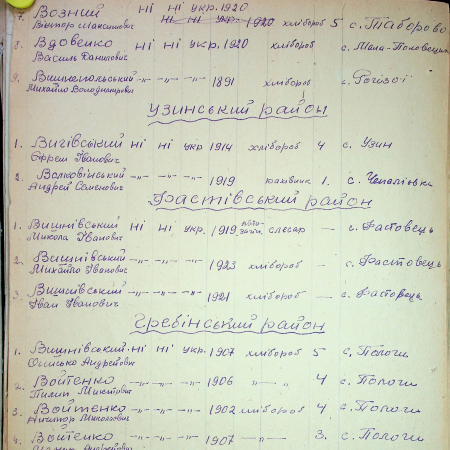 7. Возний ні ні укр. 1920
Віктор Максимович ні ні укр. 1920 хлібороб 5 с. Таборово
8. Вдовенко ні ні укр. 1920 хлібороб с. Мала-Половецьк
Василь Данилович
9. -"- -"- -"- 1891 хлібороб с.
Михайло Володимирович
Узинський район
1. Вигівський ні ні укр 1914 хлібороб 4 с. Узин
Єфрем Іванович
2. Волковінський -"- -"- -"- 1919 рахівник 1. с. Чепеліївка
Андрей Семенович
Фастівський район
1. Вишнівський ні ні укр. 1919 слесар — с. Фастовець
Микола Іванович
2. Вишнівський -"- -"- -"- 1923 хлібороб с. Фастовець
Михайло Іванович
3. Вишнівський -"- -"- -"- 1921 хлібороб — с. Фастовець
Іван Іванович
Гребінський район
1. Вишнівський ні ні укр. 1907 хлібороб 5 с. Пологи
Андреєвич
2. Войтенко -"- -"- -"- 1906 -"- 4 с. Пологи
Пилип Микитович
3. Войтенко -"- -"- -"- 1902 хлібороб 4 с. Пологи
Миколович
4. Войтенко -"- -"- -"- 1907 -"- 3. с. Пологи